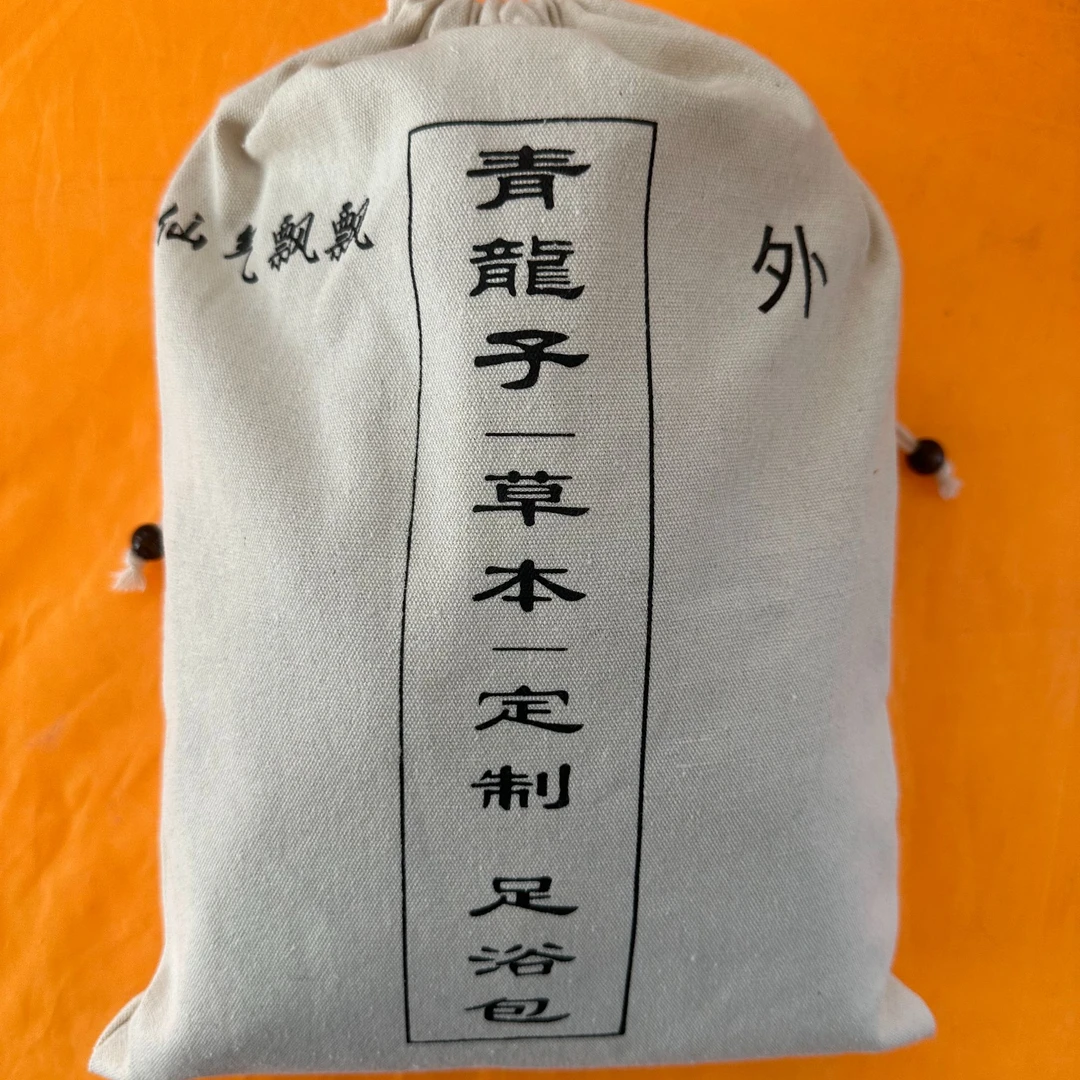 仙气飘飘
青龍子|草本|定制 足浴包
外